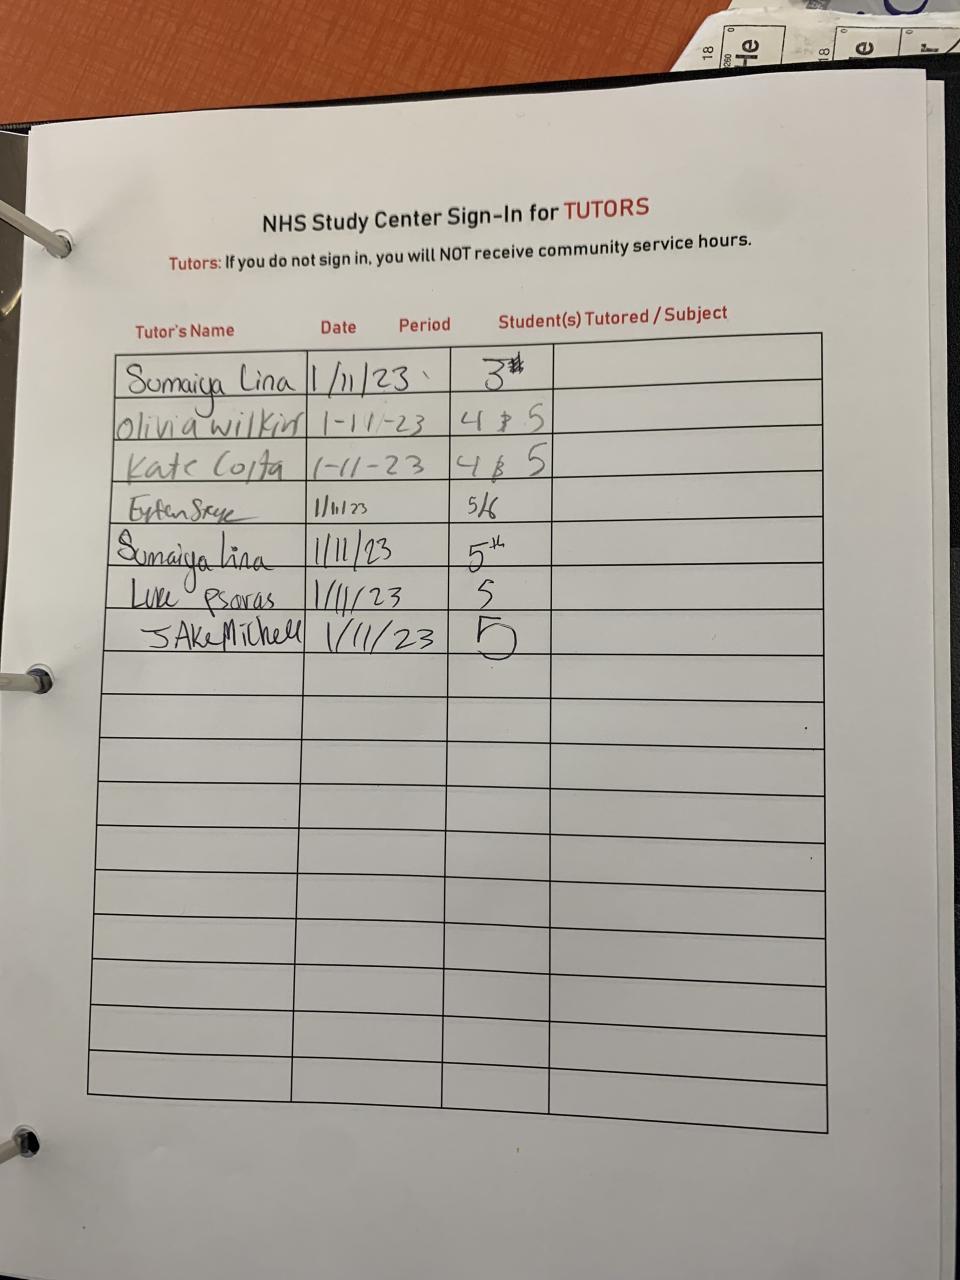 18
0
260
He
18
0
e
0
r
NHS Study Center Sign-In for TUTORS
Tutors: If you do not sign in, you will NOT receive community service hours.
Tutor's Name Date Period Student(s) Tutored / Subject
Sumaiya Lina 1/11/23 3
Olivia Wilkins 1-11-23 4 & 5
Kate Costa 1-11-23 4 & 5
1/11/23 5/6
Sumaiya Lina 1/11/23 5th
Luke Psaras 1/11/23 5
JAke Michell 1/11/23 5